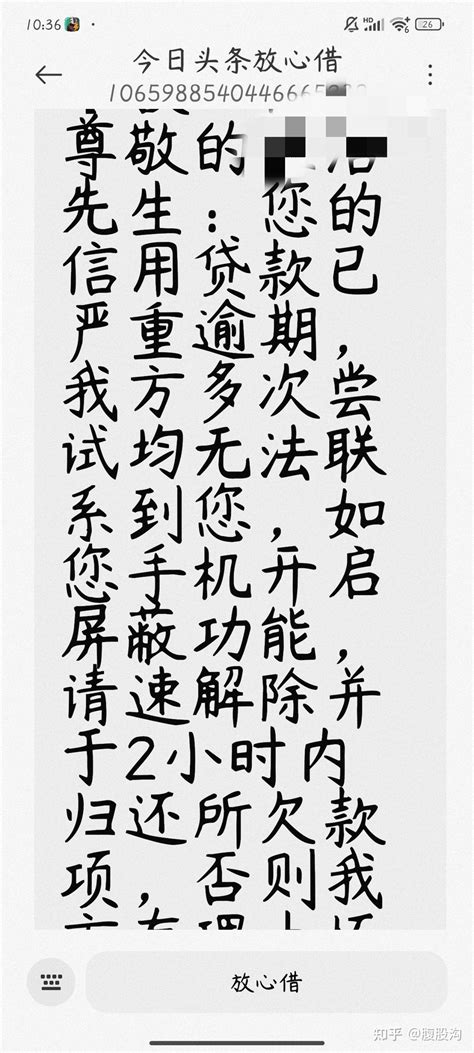 10:36
HD
26
今日头条放心借
1065988540446665
尊敬的
先生：您的
信用贷款已
严重逾期，
我方多次尝
试均无法联
系到您，如
您手机开启
屏蔽功能，
请速解除并
于2小时内
归还所欠款
项，否则我
放心借
知乎 @腹股沟